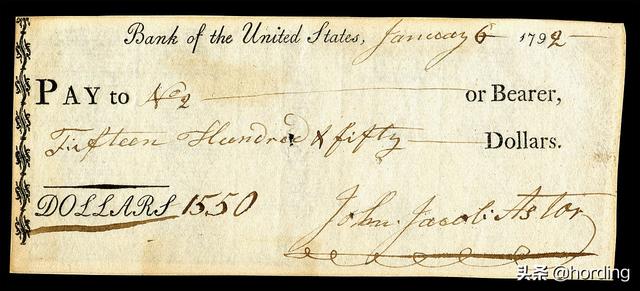 Bank of the United States, January 6 1792
PAY to No 2 or Bearer,
Fifteen Hundred & fifty Dollars.
DOLLARS 1550
John Jacob Astor
头条 @hording